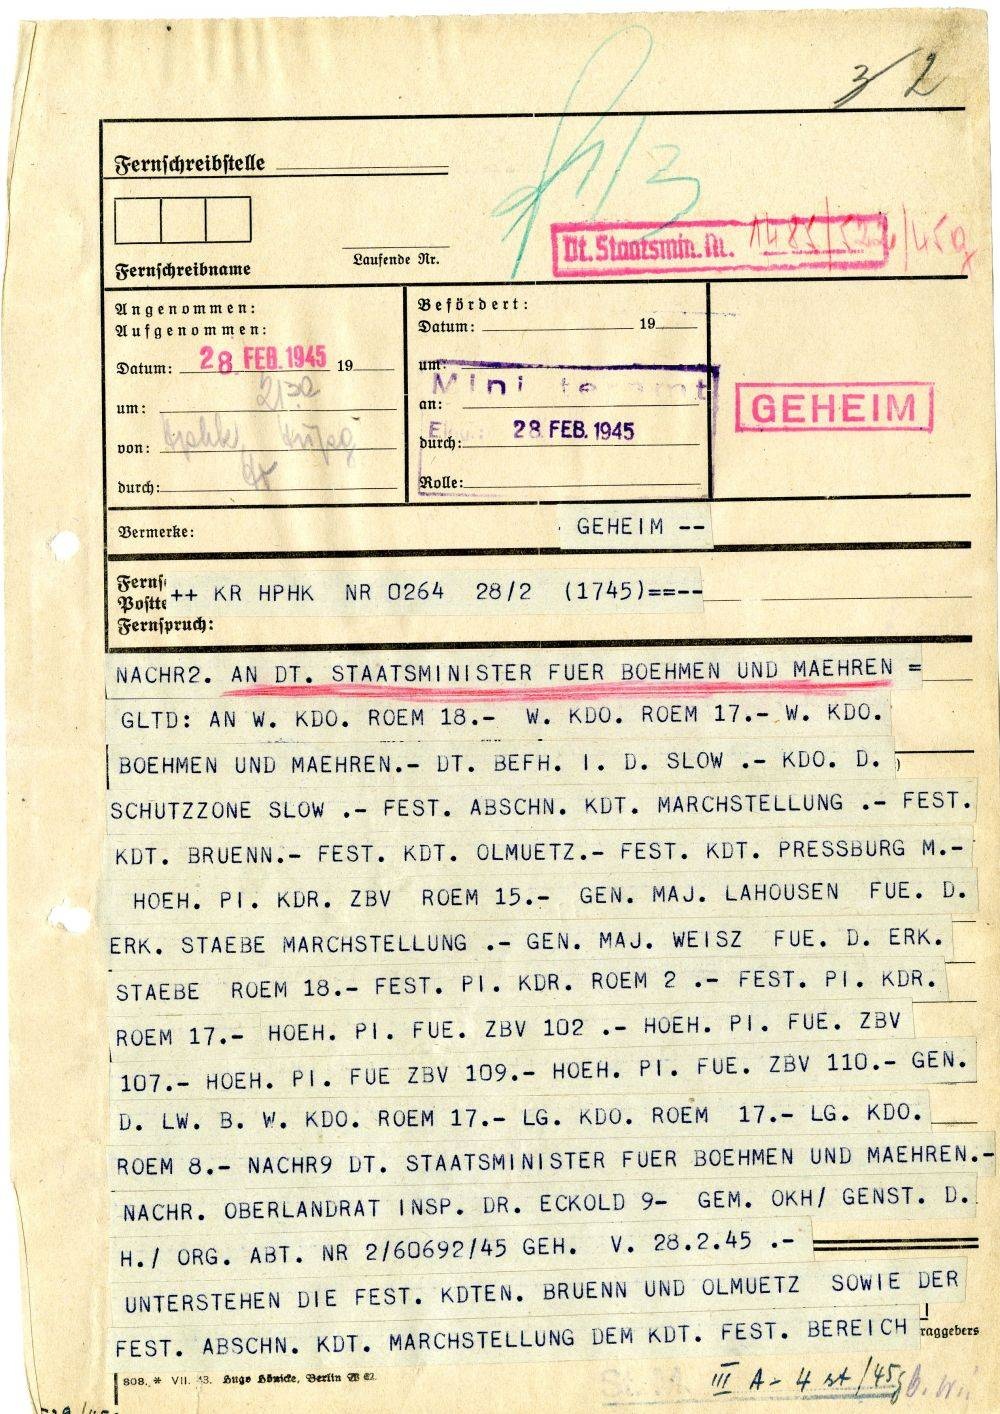 3/2
Fernschreibstelle
Dt. Staatsmin. Nr.
Fernschreibname
Laufende Nr.
Angenommen:
Aufgenommen:
Datum: 28. FEB. 1945 19
um: 2130
von:
durch:
Befördert:
Datum: 19
um:
an:
durch: 28. FEB. 1945
Rolle:
GEHEIM
Vermerke:
GEHEIM --
++ KR HPHK NR 0264 28/2 (1745)==--
Fernspruch:
NACHR2. AN DT. STAATSMINISTER FUER BOEHMEN UND MAEHREN =
GLTD: AN W. KDO. ROEM 18.- W. KDO. ROEM 17.- W. KDO.
BOEHMEN UND MAEHREN.- DT. BEFH. I. D. SLOW .- KDO. D.
SCHUTZZONE SLOW .- FEST. ABSCHN. KDT. MARCHSTELLUNG .- FEST.
KDT. BRUENN.- FEST. KDT. OLMUETZ.- FEST. KDT. PRESSBURG M.-
HOEH. PI. KDR. ZBV ROEM 15.- GEN. MAJ. LAHOUSEN FUE. D.
ERK. STAEBE MARCHSTELLUNG .- GEN. MAJ. WEISZ FUE. D. ERK.
STAEBE ROEM 18.- FEST. PI. KDR. ROEM 2 .- FEST. PI. KDR.
ROEM 17.- HOEH. PI. FUE. ZBV 102 .- HOEH. PI. FUE. ZBV
107.- HOEH. PI. FUE ZBV 109.- HOEH. PI. FUE. ZBV 110.- GEN.
D. LW. B. W. KDO. ROEM 17.- LG. KDO. ROEM 17.- LG. KDO.
ROEM 8.- NACHR9 DT. STAATSMINISTER FUER BOEHMEN UND MAEHREN.-
NACHR. OBERLANDRAT INSP. DR. ECKOLD 9- GEM. OKH/ GENST. D.
H./ ORG. ABT. NR 2/60692/45 GEH. V. 28.2.45 .-
UNTERSTEHEN DIE FEST. KDTEN. BRUENN UND OLMUETZ SOWIE DER
FEST. ABSCHN. KDT. MARCHSTELLUNG DEM KDT. FEST. BEREICH
raggebers
808. * VII. 43. Hugo Hönicke, Berlin
III A - 4 st /45g